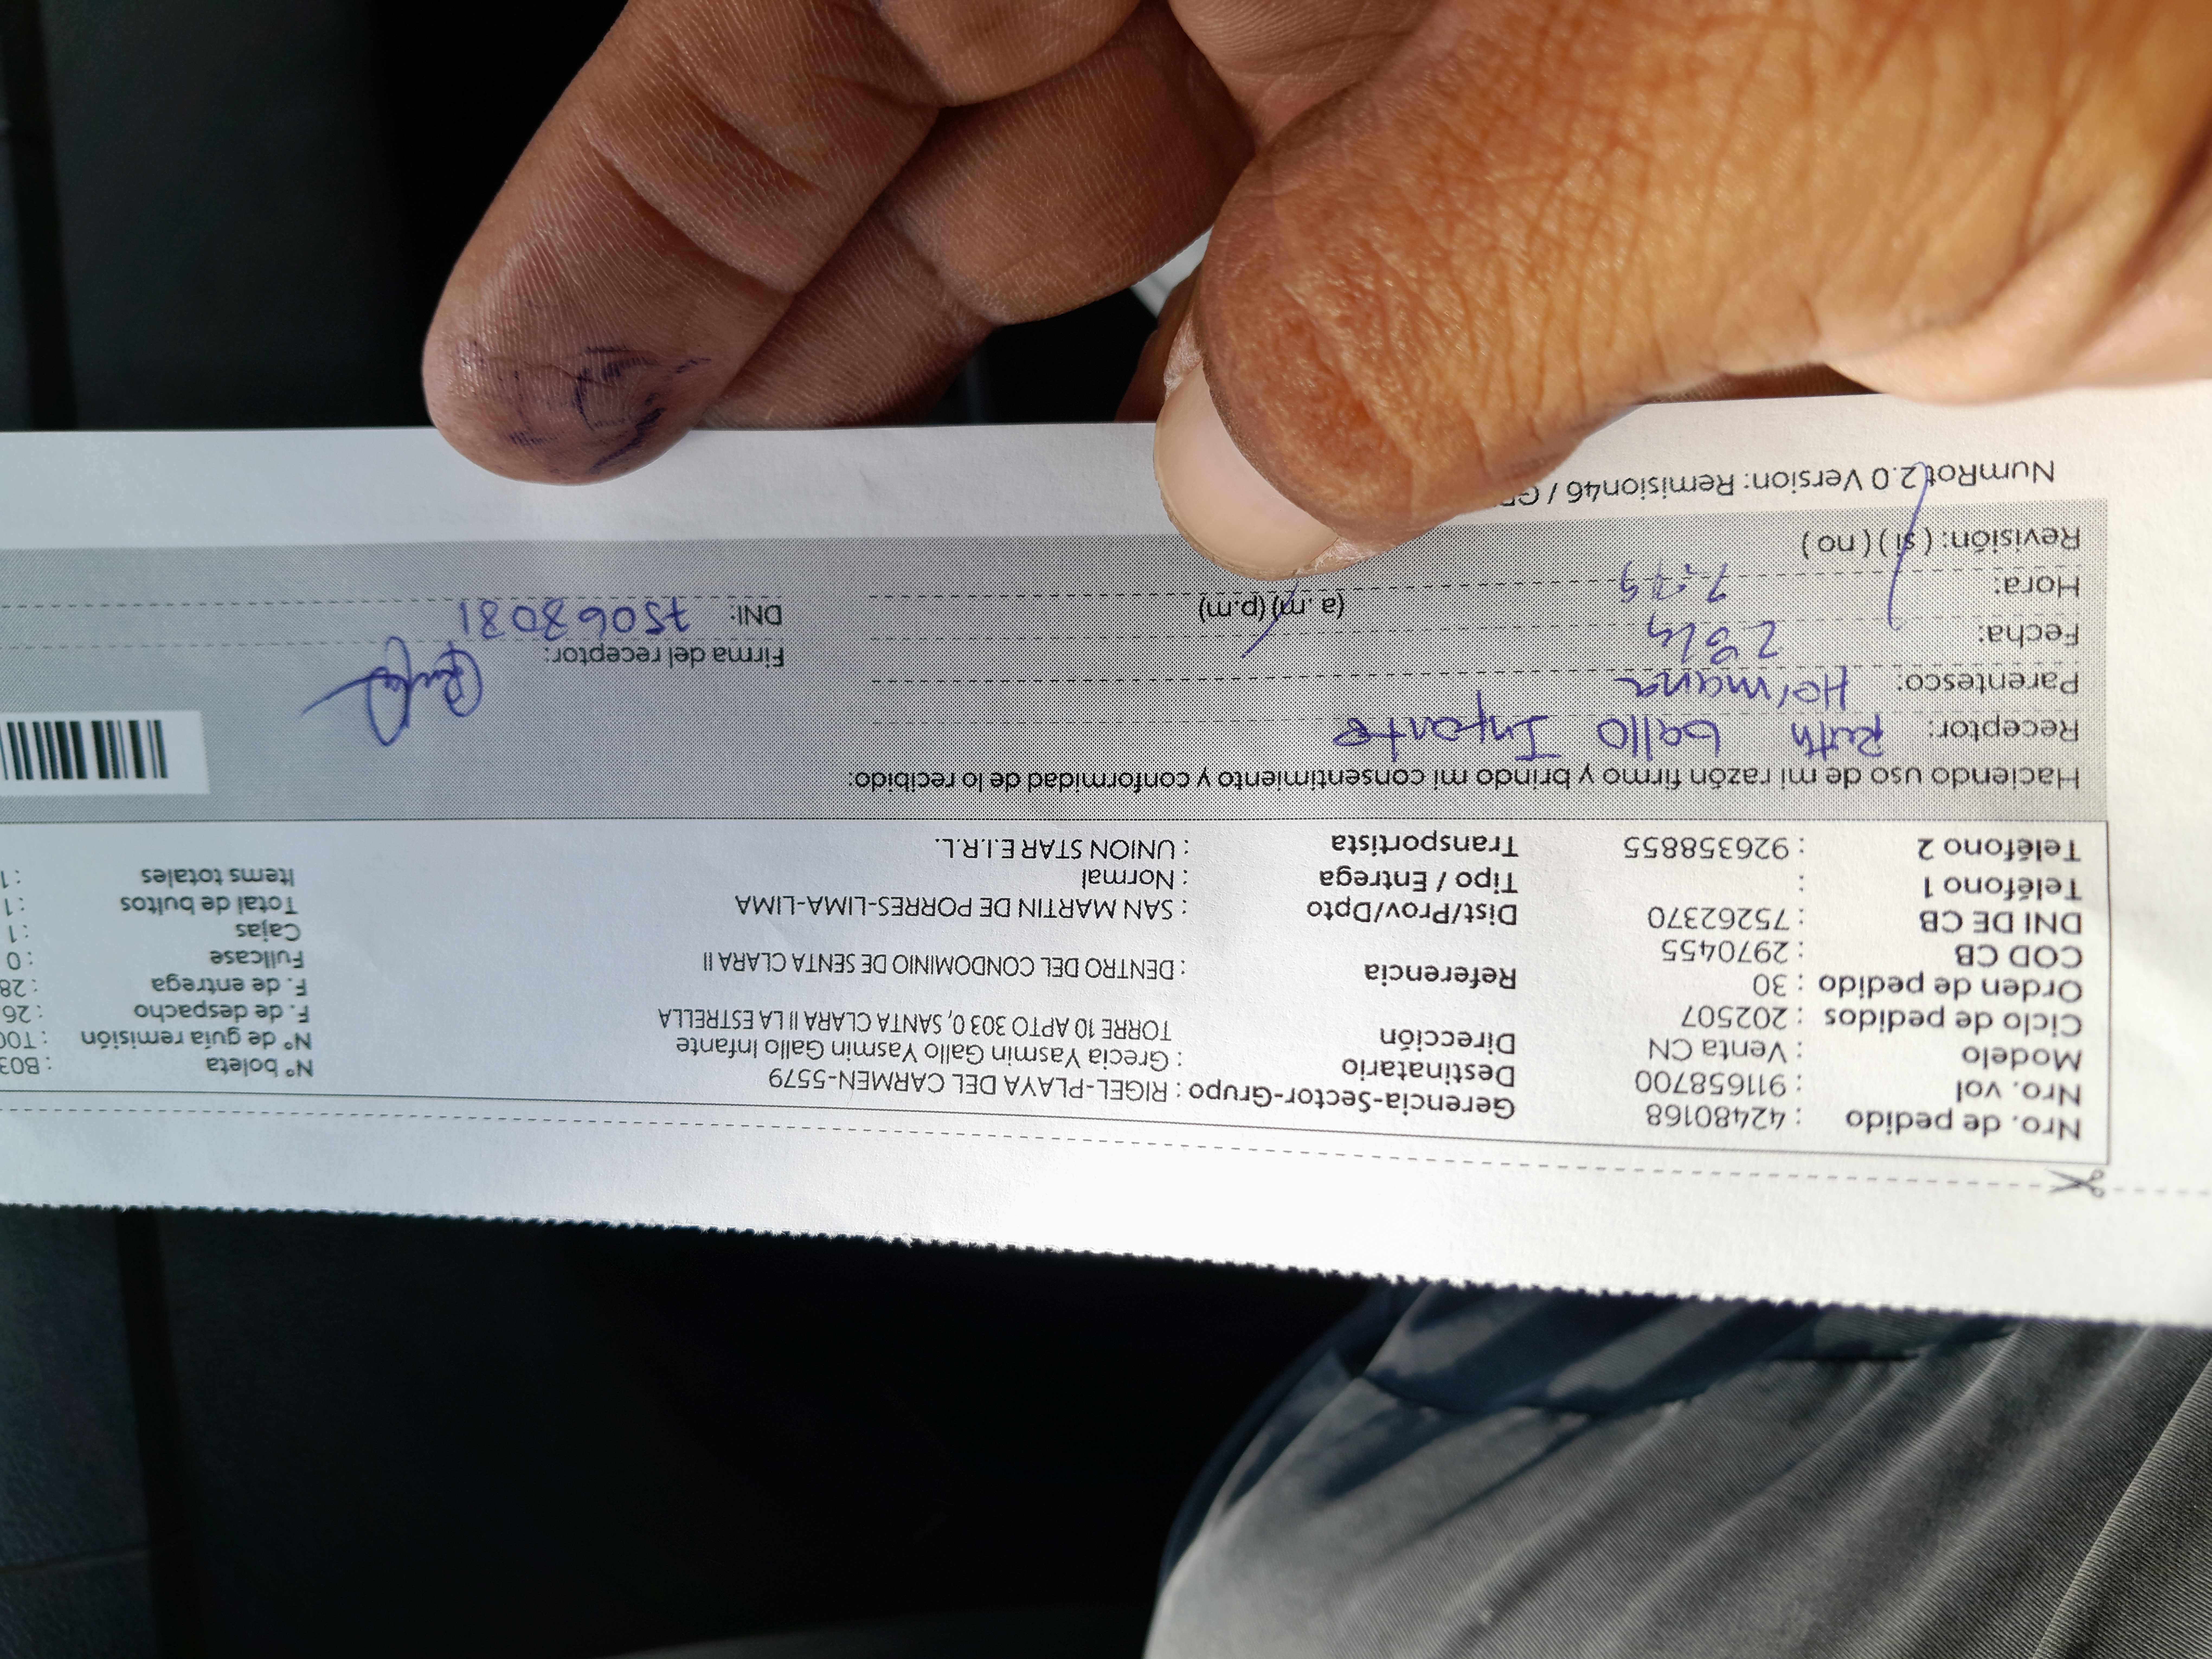 Nro. de pedido : 42480168
Nro. vol : 911658700
Modelo : Venta CN
Ciclo de pedidos : 202507
Orden de pedido : 30
COD CB : 2970455
DNI DE CB : 75262370
Teléfono 1 :
Teléfono 2 : 926358855
Gerencia-Sector-Grupo : RIGEL-PLAYA DEL CARMEN-5579
Destinatario : Grecia Yasmin Gallo Yasmin Gallo Infante
Dirección TORRE 10 APTO 303 0, SANTA CLARA II LA ESTRELLA
Referencia : DENTRO DEL CONDOMINIO DE SENTA CLARA II
Dist/Prov/Dpto : SAN MARTIN DE PORRES-LIMA-LIMA
Tipo / Entrega : Normal
Transportista : UNION STAR E.I.R.L.
N° boleta : B03
N° de guía remisión : T00
F. de despacho : 26
F. de entrega : 28
Fullcase : 0
Cajas : 1
Total de bultos : 1
Items totales : 1
Haciendo uso de mi razón firmo y brindo mi consentimiento y conformidad de lo recibido:
Receptor: Ruth Gallo Infante
Parentesco: Hermana
Fecha:
Hora: (a. m) (p.m)
Revisión: ( si ) ( no )
Firma del receptor:
DNI: 75068081
NumRot 2.0 Version: Remision46 /